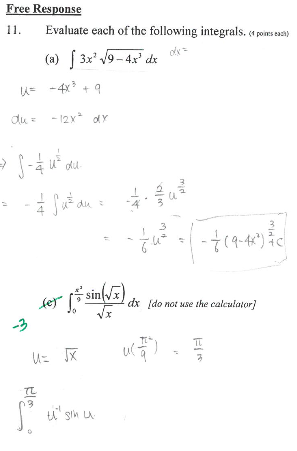 Free Response
11. Evaluate each of the following integrals. (4 points each)
(a) ∫ 3x² √(9 – 4x³) dx dx =
u = -4x³ + 9
du = -12x² dx
⇒ ∫ -1/4 u^(1/2) du
= -1/4 ∫ u^(1/2) du = -1/4 · 2/3 u^(3/2)
= -1/6 u^(3/2) = -1/6 (9-4x³)^(3/2) + C
(c) ∫₀^(π²/9) sin(√x)/√x dx [do not use the calculator]
-3
u = √x u(π²/9) = π/3
∫₀^(π/3) u⁻¹ sin u